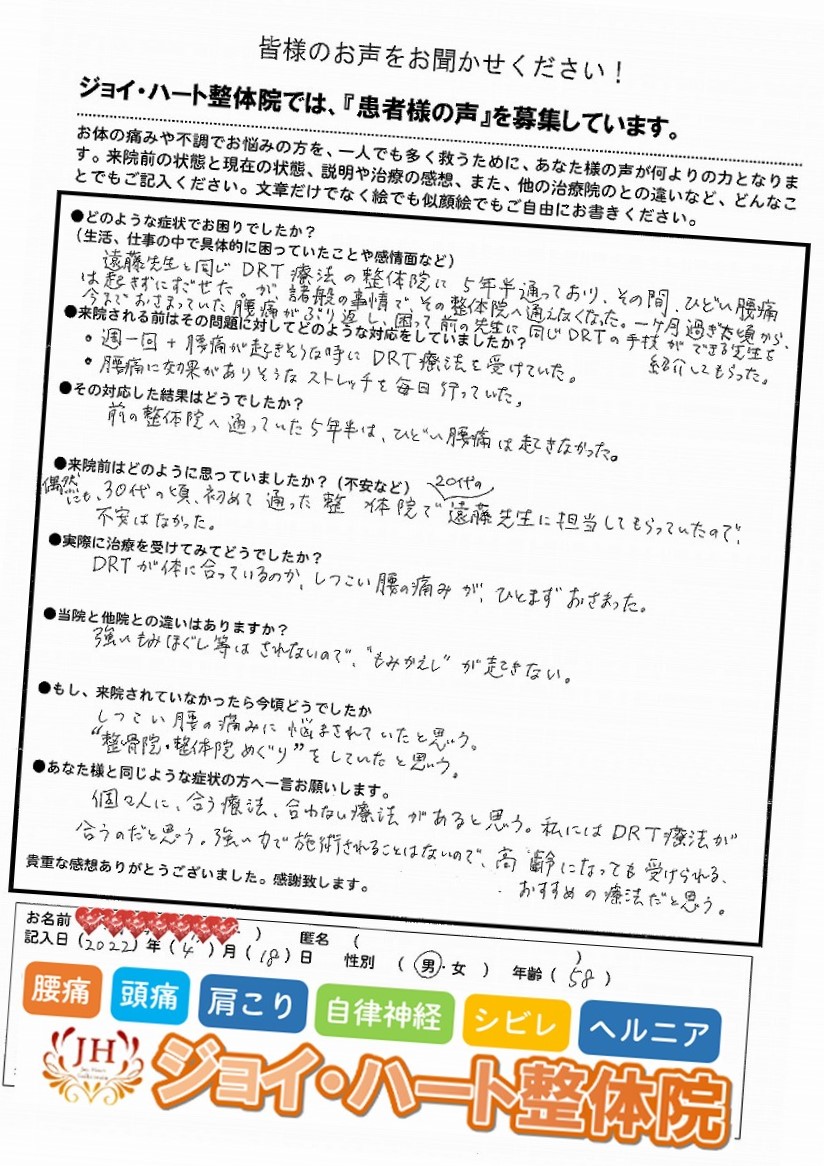 皆様のお声をお聞かせください!
ジョイ・ハート整体院では、『患者様の声』を募集しています。
お体の痛みや不調でお悩みの方を、一人でも多く救うために、あなた様の声が何よりの力となりま
す。来院前の状態と現在の状態、説明や治療の感想、また、他の治療院のとの違いなど、どんなこ
とでもご記入ください。文章だけでなく絵でも似顔絵でもご自由にお書きください。
●どのような症状でお困りでしたか?
(生活、仕事の中で具体的に困っていたことや感情面など)
遠藤先生と同じDRT療法の整体院に5年半通っており、その間、ひどい腰痛
は起きずにすごせた。が諸般の事情でその整体院へ通えなくなった。一ケ月過ぎた頃から、
今までおさまっていた腰痛がぶり返し、困って前の先生に同じDRTの手技ができる先生を
紹介してもらった。
●来院される前はその問題に対してどのような対応をしていましたか?
・週一回+腰痛が起きそうな時にDRT療法を受けていた。
・腰痛に効果がありそうなストレッチを毎日行っていた。
●その対応した結果はどうでしたか?
前の整体院へ通っていた5年半は、ひどい腰痛は起きなかった。
●来院前はどのように思っていましたか?(不安など)
偶然にも、30代の頃、初めて通った整体院で20代の遠藤先生に担当してもらっていたので、
不安はなかった。
●実際に治療を受けてみてどうでしたか?
DRTが体に合っているのか、しつこい腰の痛みが、ひとまずおさまった。
●当院と他院との違いはありますか?
強いもみほぐし等はされないので、"もみかえし"が起きない。
●もし、来院されていなかったら今頃どうでしたか
しつこい腰の痛みに悩まされていたと思う。
"整骨院・整体院めぐり"をしていたと思う。
●あなた様と同じような症状の方へ一言お願いします。
個々人に、合う療法、合わない療法があると思う。私にはDRT療法が
合うのだと思う。強い力で施術されることはないので、高齢になっても受けられる、
おすすめの療法だと思う。
貴重な感想ありがとうございました。感謝致します。
お名前 ) 匿名 ( )
記入日(2022)年(4)月(18)日 性別 (男・女) 年齢(58)
腰痛 頭痛 肩こり 自律神経 シビレ ヘルニア
JH
ジョイ・ハート整体院